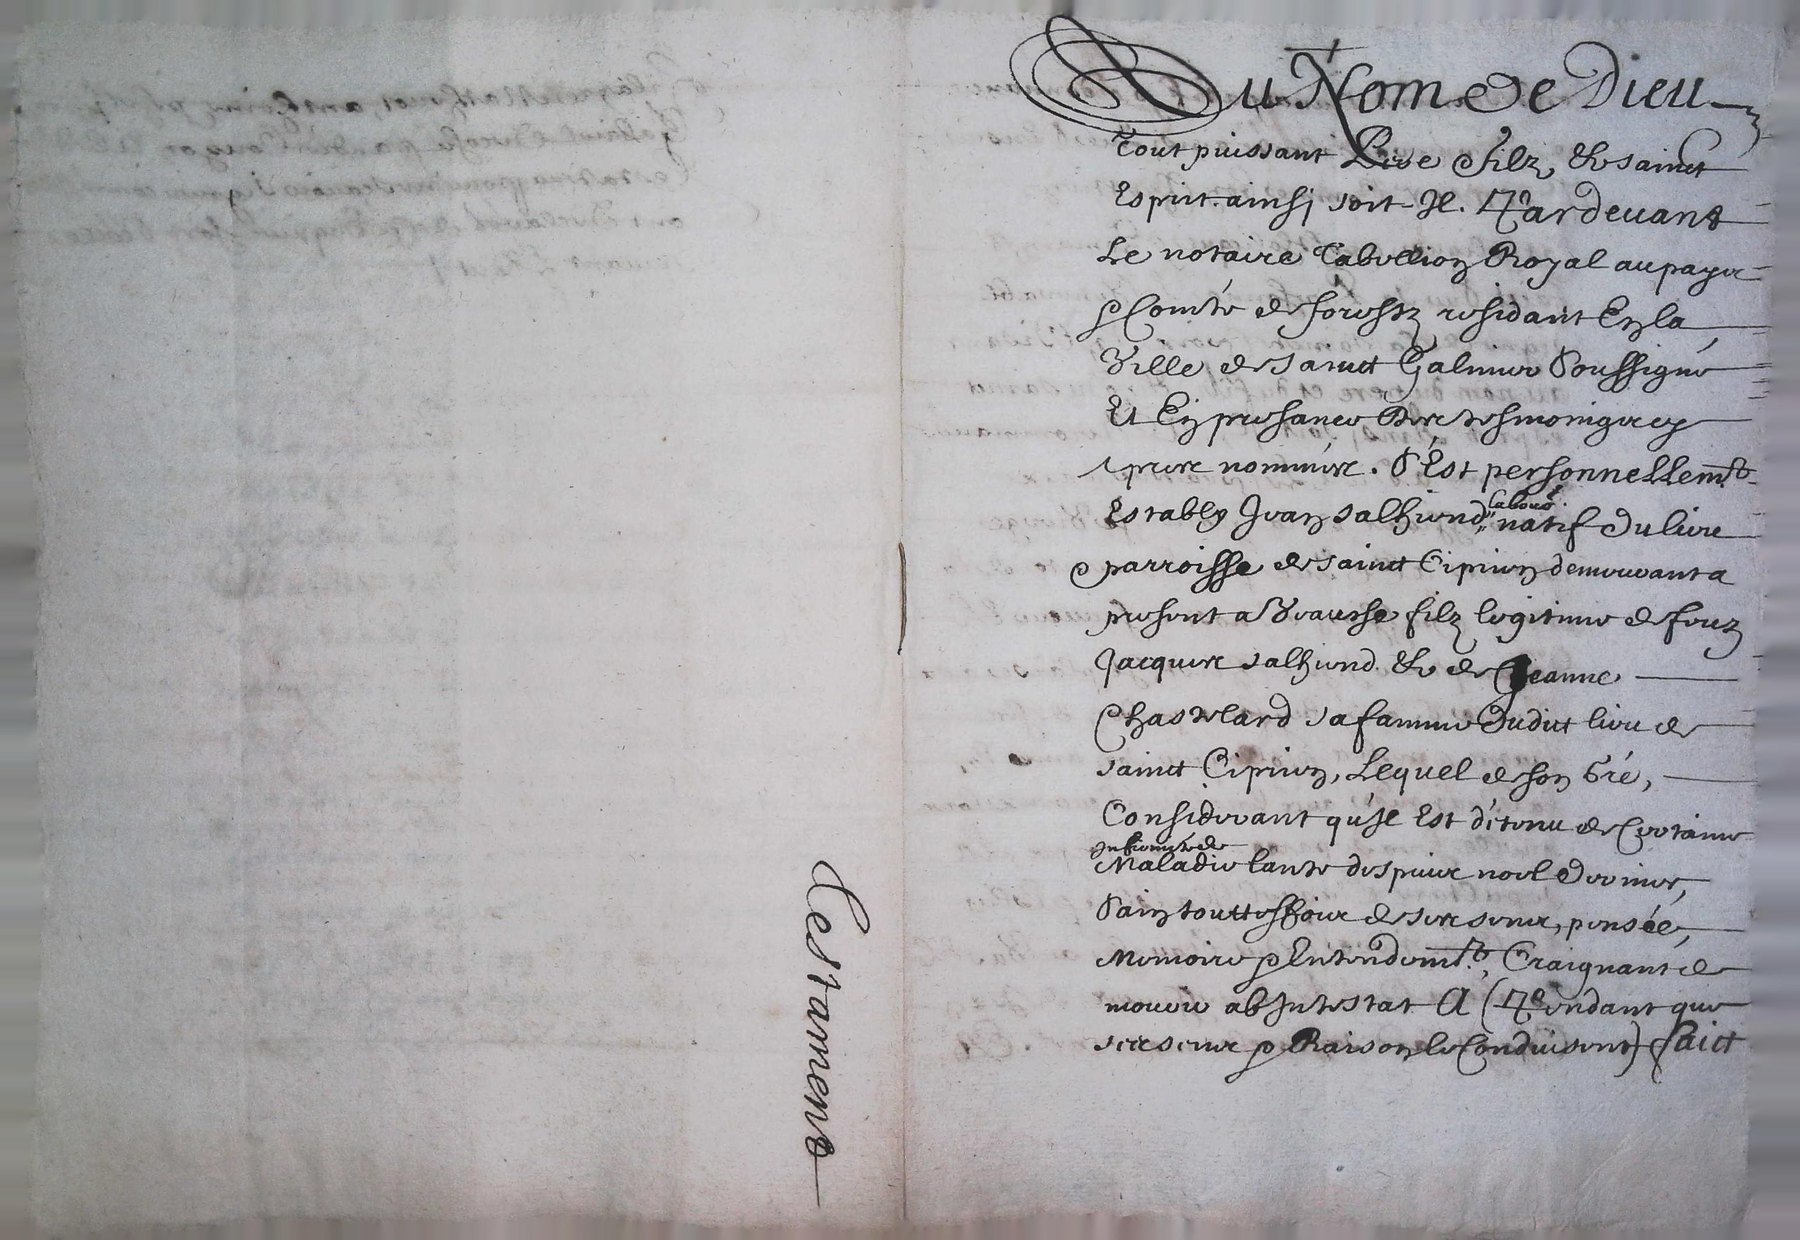 Testament
Au Nom de Dieu
Tout puissant Pere Filz, & sainct
Esprit ainsi soit Il. Pardevant
Le notaire Tabellion Royal au payis
& Comté de forestz residant En la
Ville de sainct Galmier Soussigné
Et En presance des tesmoings cy
apres nommés. S'Est personnellemt
Estably Jean salhiend, natif du lieu
labour
& parroisse de sainct Ciprien demeurant a
present a filz legitime de feuz
Jacques salhiend & de Jeanne
Chastelard sa famme dudict lieu de
sainct Ciprien, Lequel de son Gré,
Considerant qu'Il Est détenu de Certaine
Infirmité de
Maladie despuis noel dernier,
Sain touttesfois de ses sens, pensée,
Memoire & Entendemt, Craignant de
mourir ab Intestat A (Pendant que
ses sens & Raison le Conduisent) faict